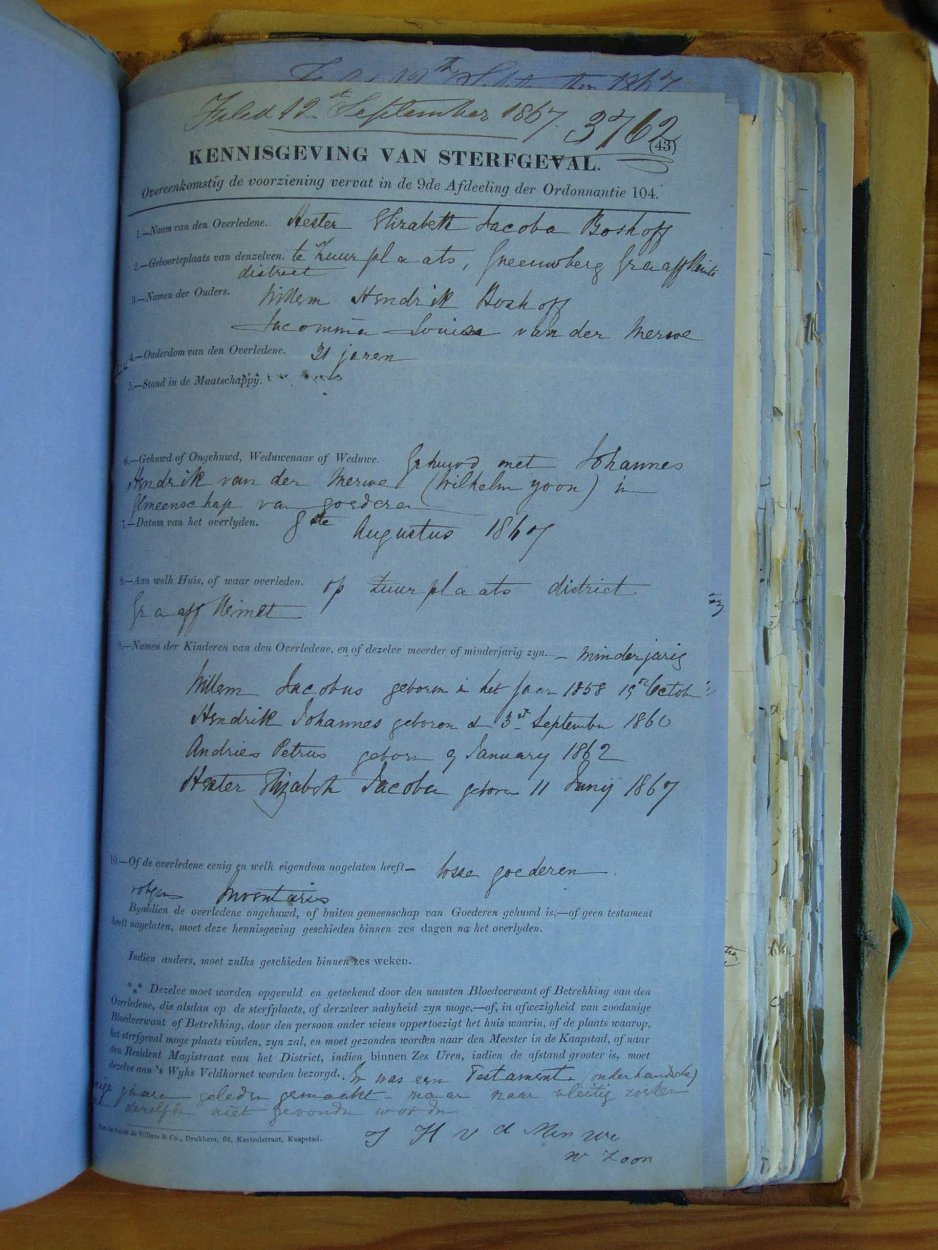 Filed 12th September 1867. 3762
(43)
KENNISGEVING VAN STERFGEVAL.
Overeenkomstig de voorziening vervat in de 9de Afdeeling der Ordonnantie 104.
1.—Naam van den Overledene. Hester Elizabeth Jacoba Boshoff
2.—Geboorteplaats van denzelven. te Zuurplaats, Sneeuwberg Graaff Reinet
district
3.—Namen der Ouders. Willem Hendrik Boshoff
Jacomina Louisa van der Merwe
4.—Ouderdom van den Overledene. 31 jaren
5.—Stand in de Maatschappij.
6.—Gehuwd of Ongehuwd, Weduwenaar of Weduwe. Gehuwd met Johannes
Hendrik van der Merwe (Wilhelm zoon) in
Gemeenschap van goederen
7.—Datum van het overlyden. 8ste Augustus 1867
8.—Aan welk Huis, of waar overleden. op Zuurplaats district
Graaff Reinet
9.—Namen der Kinderen van den Overledene, en of dezelve meerder of minderjarig zyn. – Minderjarig
Willem Jacobus geboren in het Jaar 1858 19 Octob
Hendrik Johannes geboren d 3 September 1860
Andries Petrus geboren 9 January 1862
Hester Elizabeth Jacoba geboren 11 Junij 1867
10.—Of de overledene eenig en welk eigendom nagelaten heeft – losse goederen
volgens Inventaris
Byaldien de overledene ongehuwd, of buiten gemeenschap van Goederen gehuwd is,—of geen testament
heeft nagelaten, moet deze kennisgeving geschieden binnen zes dagen na het overlyden.
Indien anders, moet zulks geschieden binnen zes weken.
Dezelve moet worden opgevuld en geteekend door den naasten Bloedverwant of Betrekking van den
Overledene, die alsdan op de sterfplaats, of derzelver nabyheid zyn moge,—of, in afwezigheid van zoodanige
Bloedverwant of Betrekking, door den persoon onder wiens oppertoezigt het huis waarin, of de plaats waarop,
het sterfgeval moge plaats vinden, zyn zal, en moet gezonden worden naar den Meester in de Kaapstad, of naar
den Resident Magistraat van het District, indien binnen Zes Uren, indien de afstand grooter is, moet
dezelve aan 's Wyks Veldkornet worden bezorgd. Er was een Testament onderhandsch
jaaren geleden gemaakt – maar naar vleitig zoeken
derzelfde niet gevonden worden
de Villiers & Co., Drukkers, 62, Kasteelstraat, Kaapstad.
J H v d Merwe
W Zoon